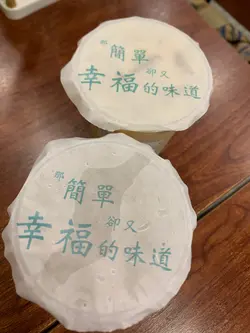 那簡單
卻又
幸福的味道
那簡單
卻又
幸福的味道